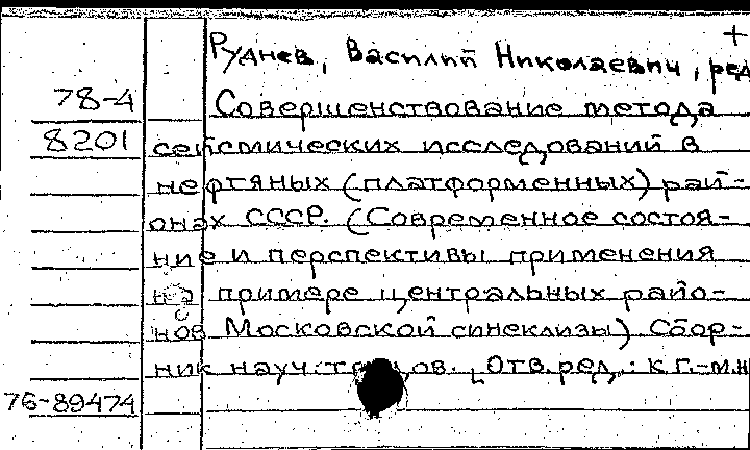 +
Руднев, Василий Николаевич, ред
78-4 Совершенствование метода
8201 сейсмических исследований в
нефтяных (платформенных) рай-
онах СССР. (Современное состоя-
ние и перспективы применения
на примере центральных райо-
нов Московской синеклизы) Сбор-
ник науч. трудов. [Отв. ред.: к.г.-м.н
76-89474